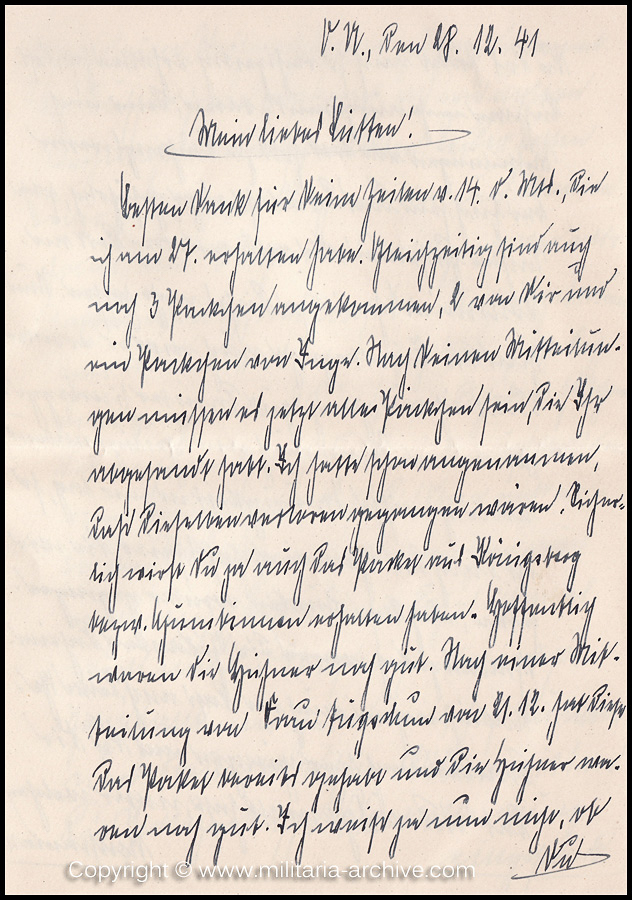 O. U., den 28. 12. 41
Mein liebes
Besten Dank für Deine Zeilen v. 14. d. Mts., die
ich am 27. erhalten habe. Gleichzeitig sind auch
noch 3 Päckchen angekommen, 2 von Dir und
ein Päckchen von Inge. Nach Deinen Mitteilun-
gen müssen es jetzt alle Päckchen sein, die Ihr
abgesandt habt. Ich hatte schon angenommen,
daß dieselben verloren gegangen wären. Sicher-
lich wirst Du ja auch das Paket aus Königsberg
bezw. Gumbinnen erhalten haben. Hoffentlich
waren die Hühner noch gut. Nach einer Mit-
teilung von Frau von 21. 12. hat diese
das Paket bereits gehabt und die Hühner wa-
ren noch gut. Ich weiß ja nun nicht, ob
Du
Copyright © www.militaria-archive.com